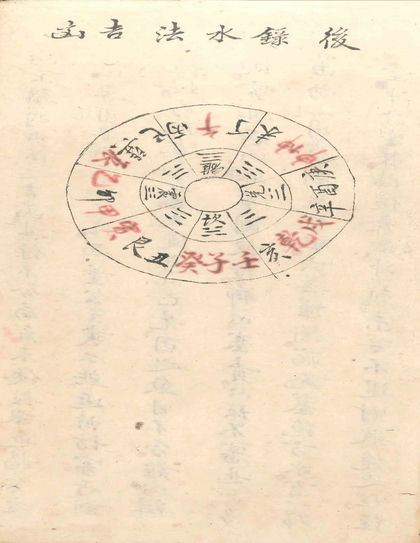 後錄水法吉凶
丙午丁
未坤申
庚酉辛
戌乾亥
壬子癸
丑艮寅
甲卯乙
辰巽巳
離
兌
坎
震